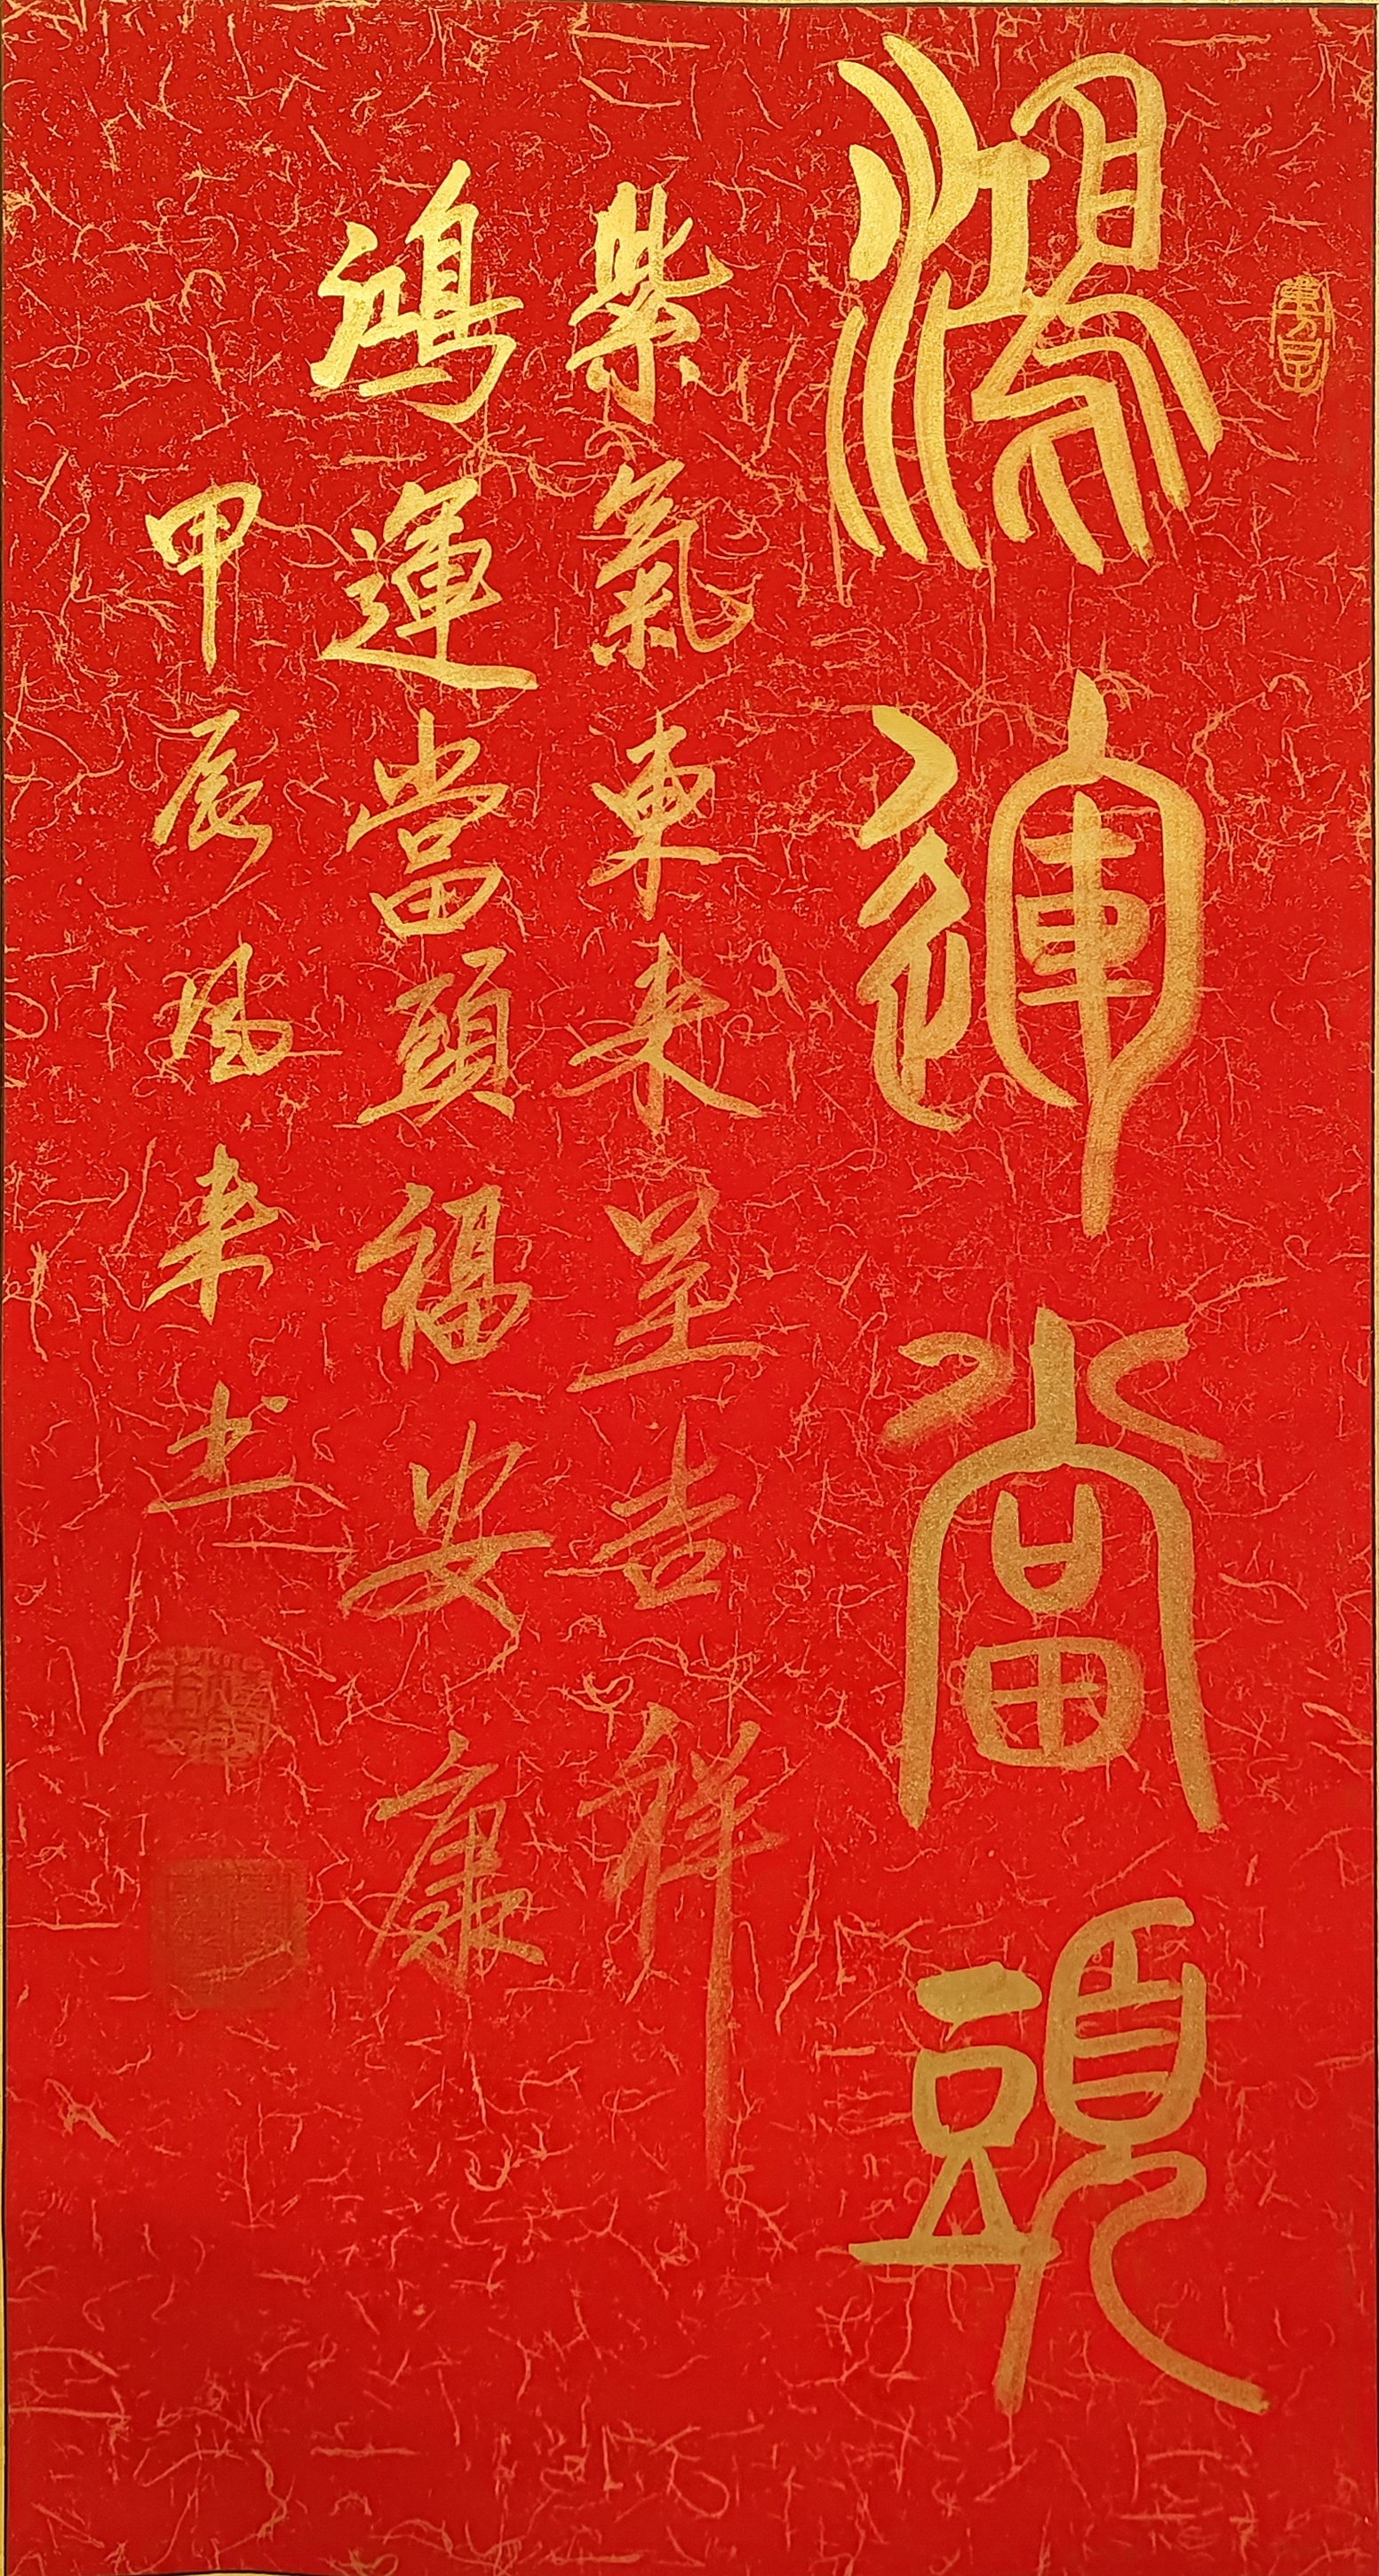 鴻運當頭
紫氣東来呈吉祥
鴻運當頭福安康
甲辰风来书